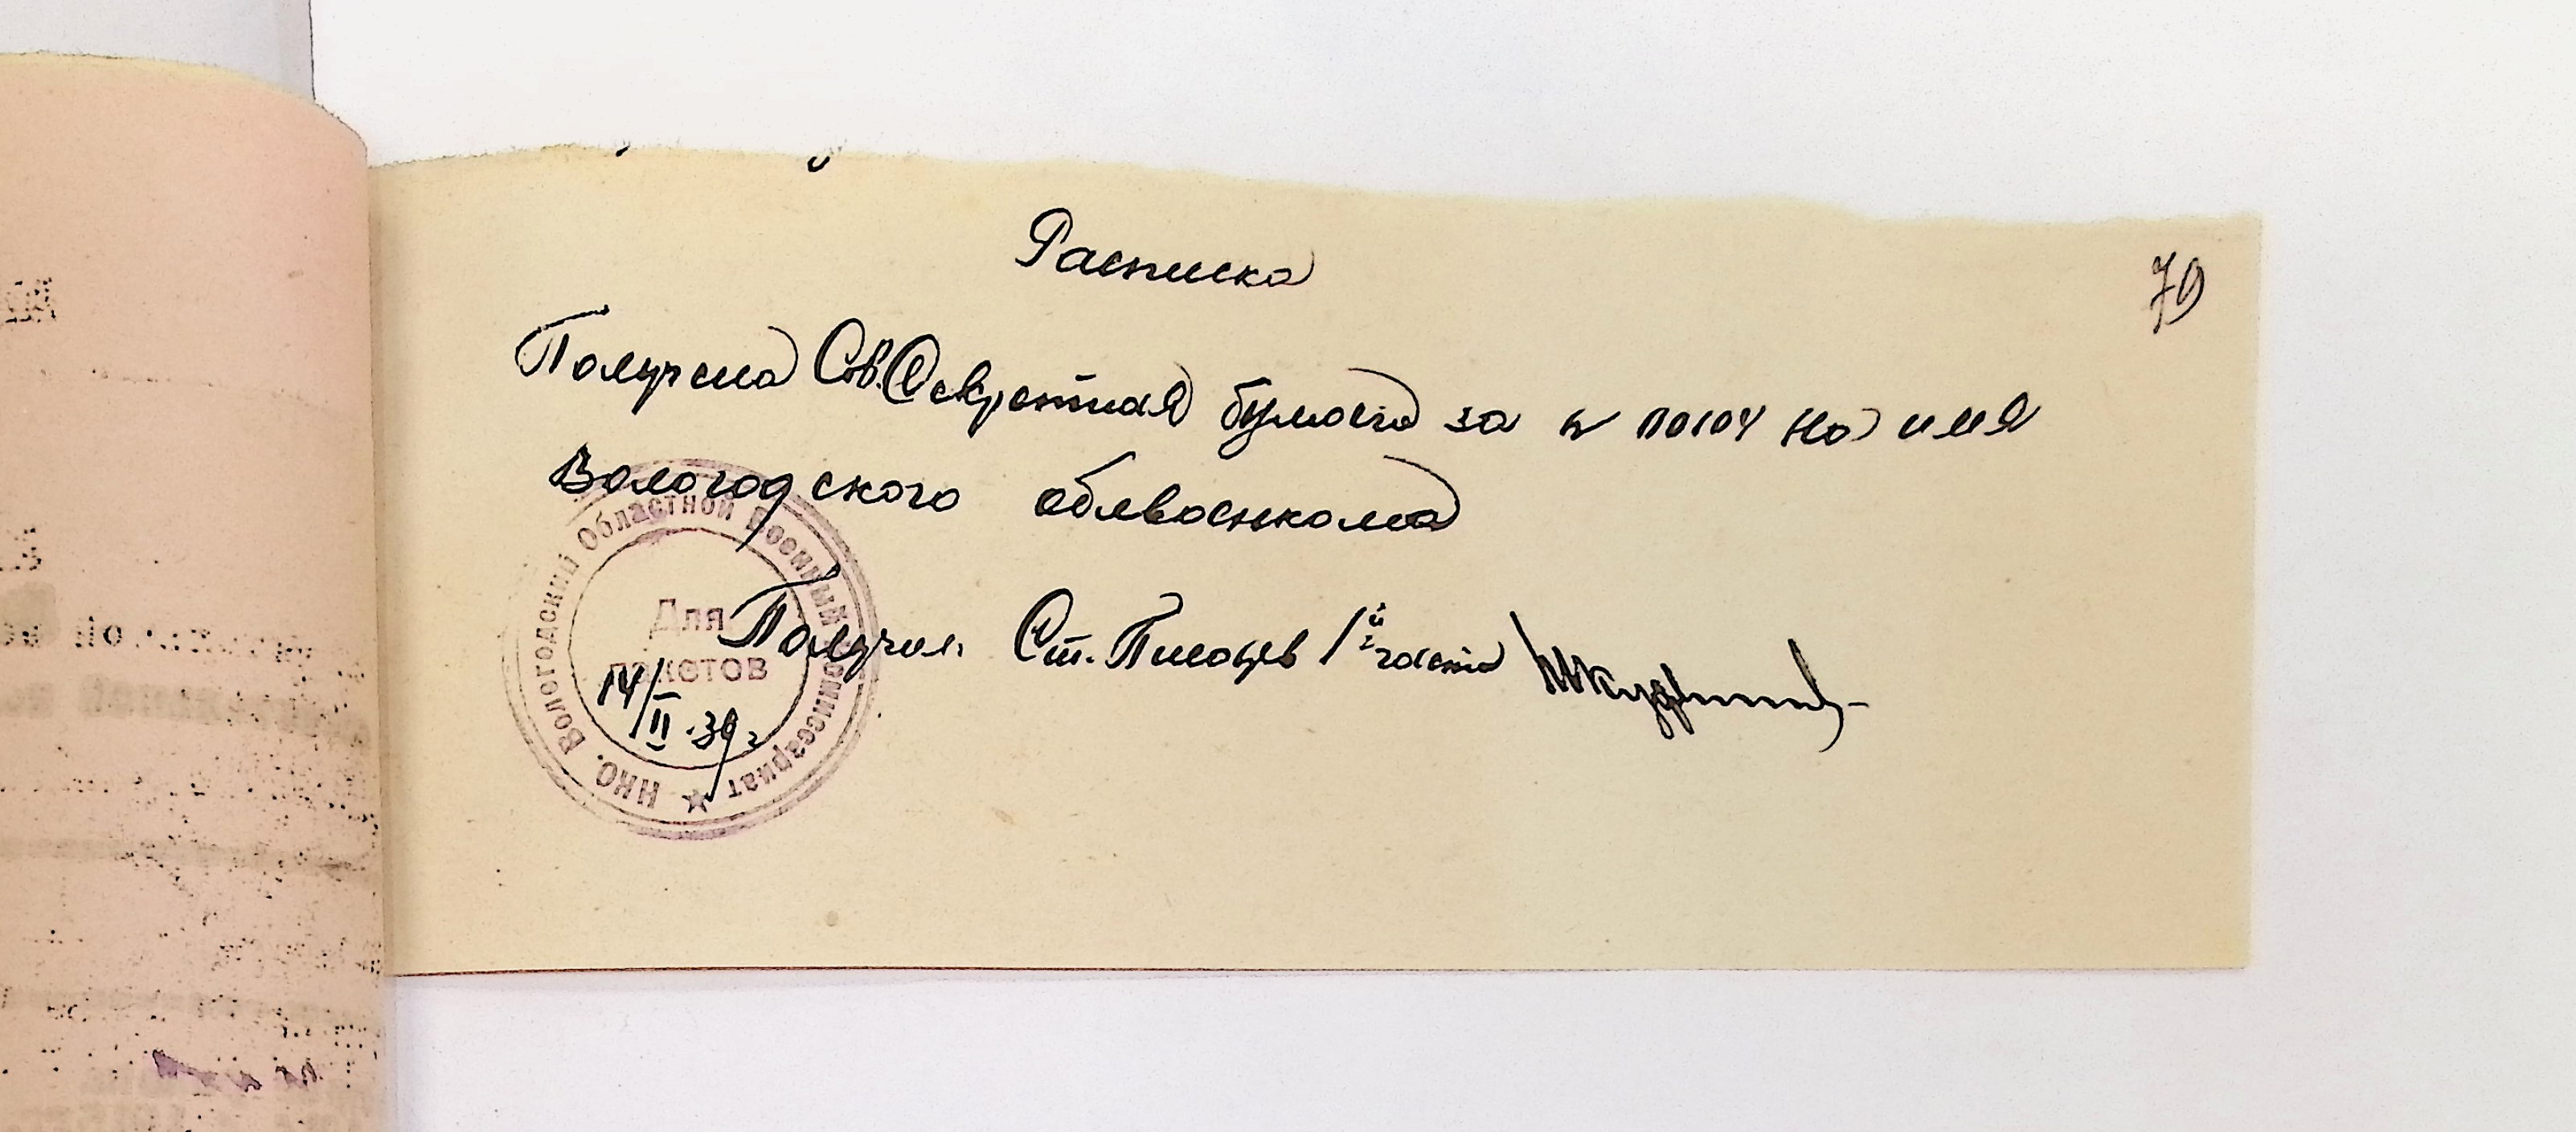 79
Расписка
Получена Сов.Секретная бумага за № 110104 на имя
Вологодского облвоенкома
Получил. Ст. Писарь 1й части
14/II.39г
НКО. Вологодский Областной Военный Комиссариат
Для
пакетов